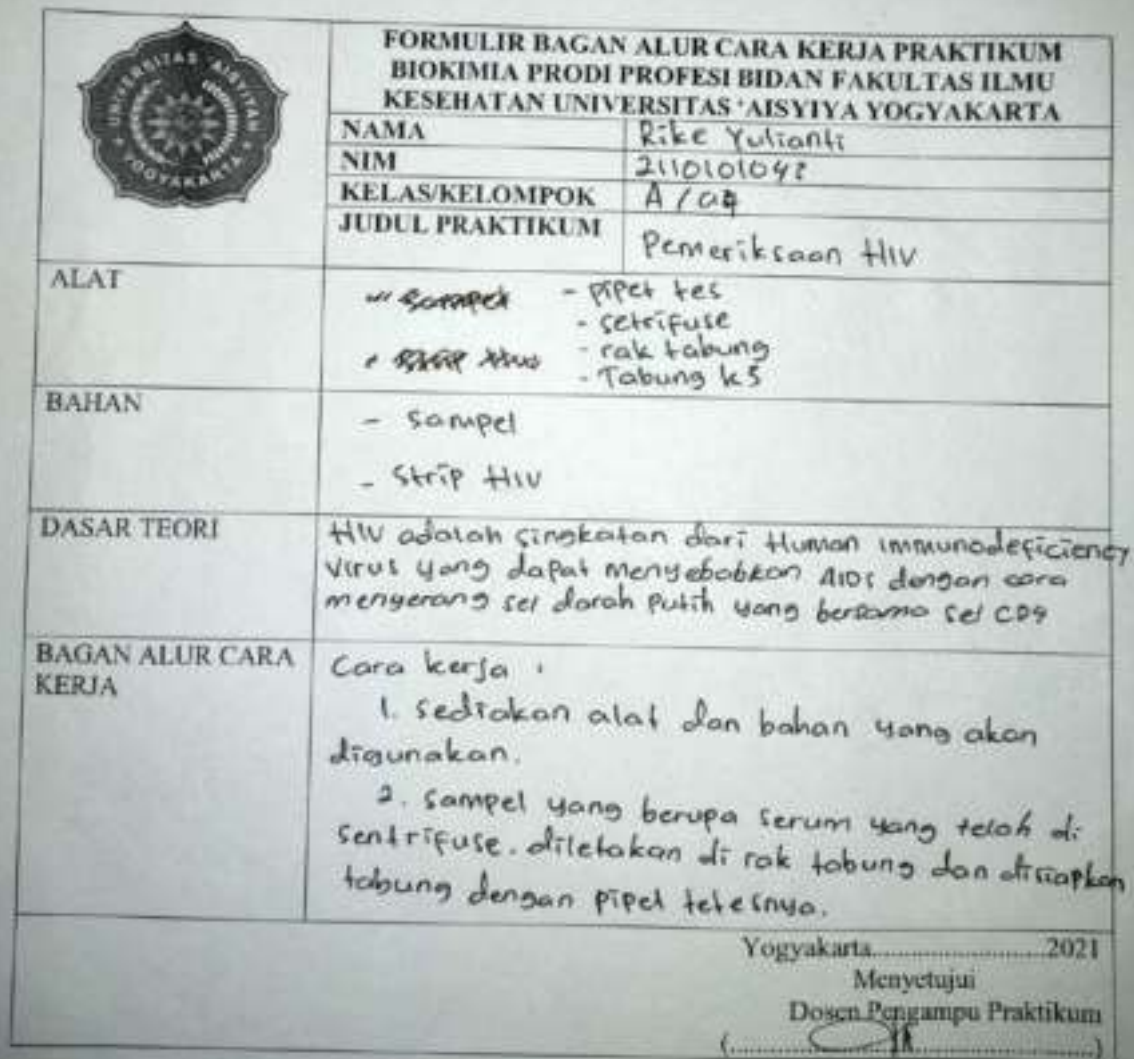 UNIVERSITAS 'AISYIYAH
YOGYAKARTA
FORMULIR BAGAN ALUR CARA KERJA PRAKTIKUM
BIOKIMIA PRODI PROFESI BIDAN FAKULTAS ILMU
KESEHATAN UNIVERSITAS 'AISYIYA YOGYAKARTA
NAMA Rike Yulianti
NIM
KELAS/KELOMPOK A /
JUDUL PRAKTIKUM Pemeriksaan HIV
ALAT
- pipet tes
- setrifuse
- rak tabung
- Tabung k3
BAHAN
- sampel
- Strip HIV
DASAR TEORI
HIV adalah singkatan dari Human immunodeficiency
virus yang dapat menyebabkan AIDS dengan cara
menyerang sel darah putih yang bersama sel CD4
BAGAN ALUR CARA
KERJA
Cara kerja :
1. sediakan alat dan bahan yang akan
digunakan.
2. sampel yang berupa serum yang telah di
sentrifuse. diletakan di rak tabung dan disiapkan
tabung dengan pipet tetesnya.
Yogyakarta..............................2021
Menyetujui
Dosen Pengampu Praktikum